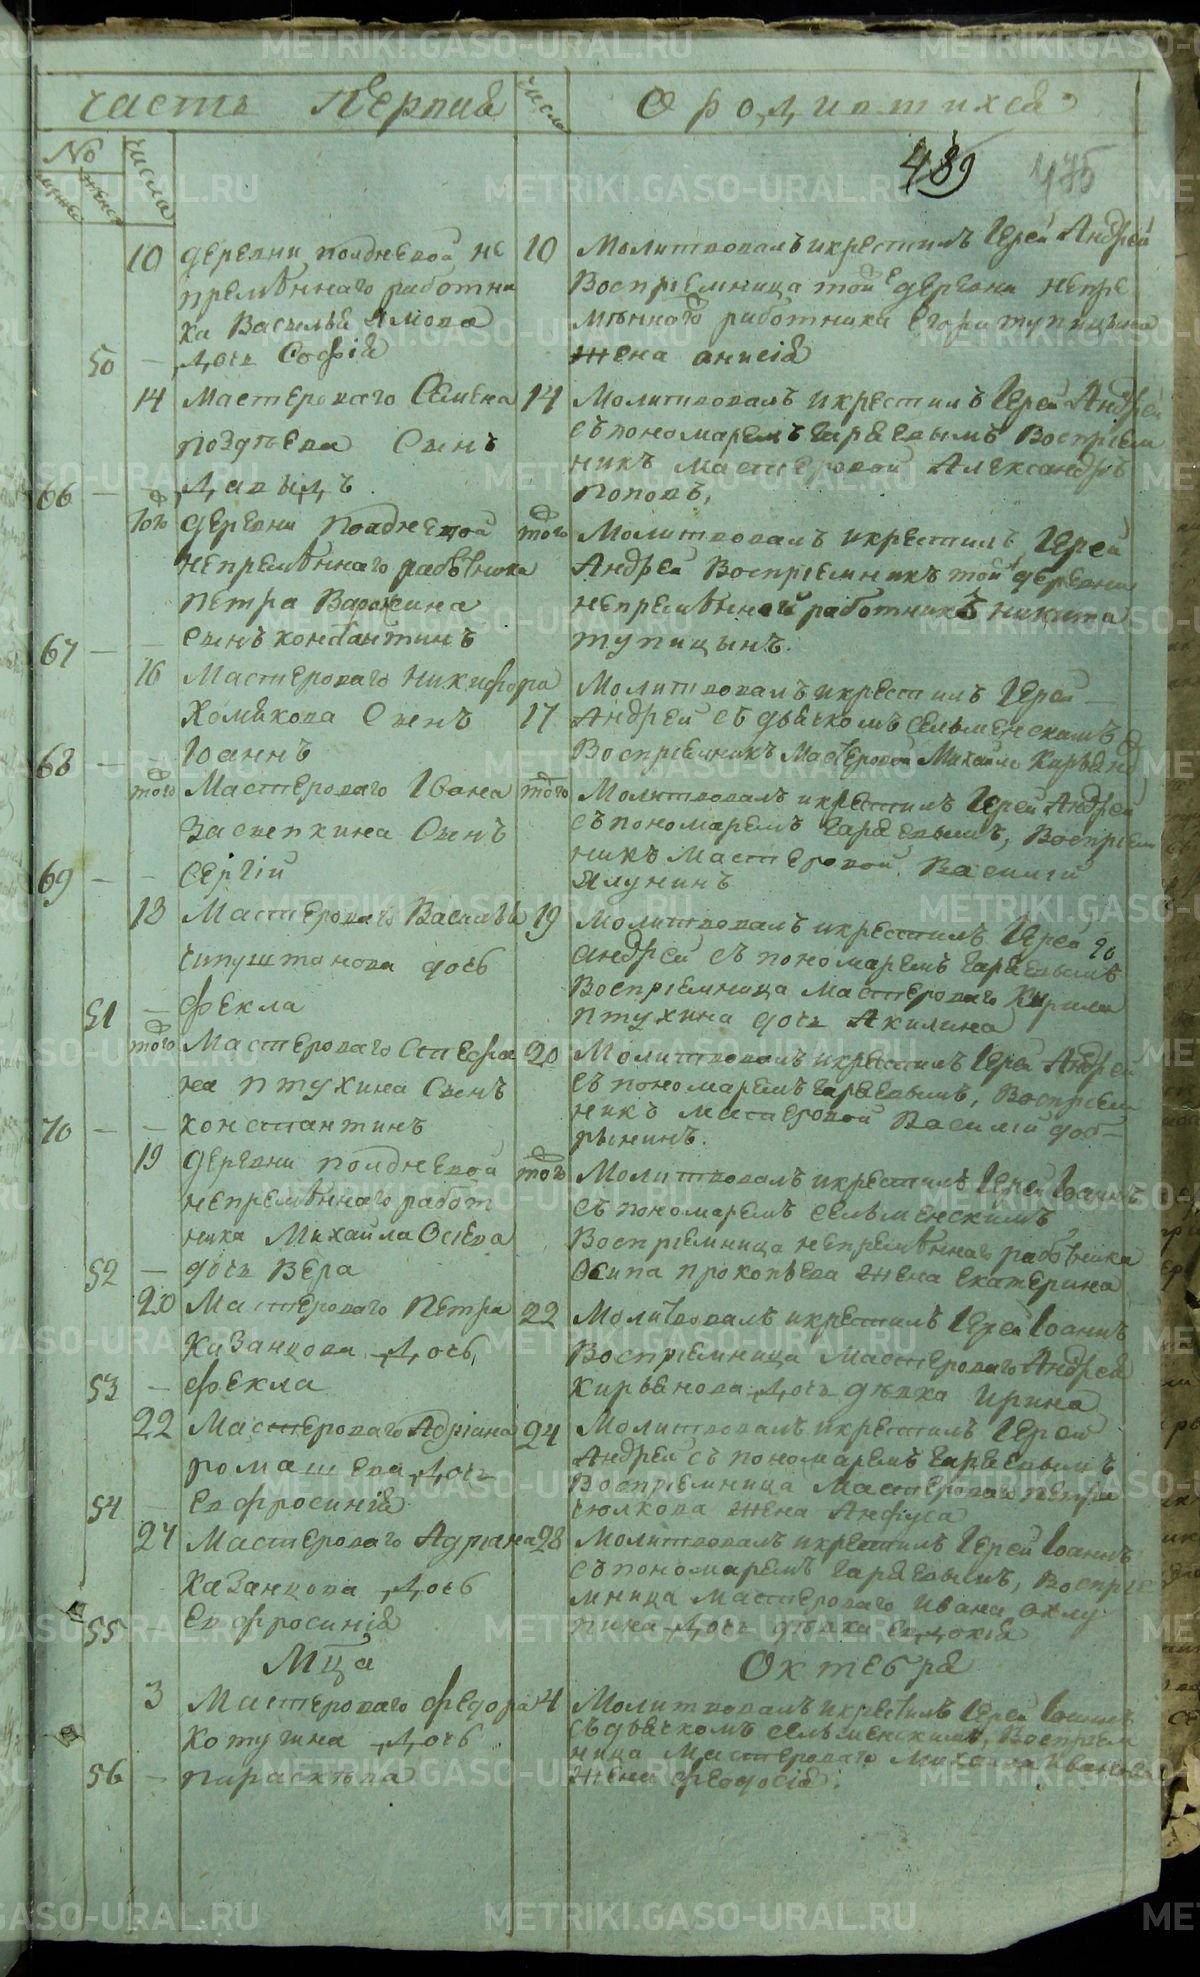 Часть Первая
числа
О родившихся
№
числа
489
475
10 деревни полдневой не
премѣннаго работни
ка Василья Ямова
50 — дочь Софія
10 Молитвовалъ икрестилъ Іерей Андрей
Воспріемница той деревни непре
мѣнного работника Егора тупицына
жена анисія
14 Мастероваго Семена
поздѣева Сынъ
66 — — Давыдъ
14 Молитвовалъ икрестилъ Іерей Андрей
съ пономаремъ Воспріем
никъ Мастеровой Александръ
Поповъ,
того деревни полдневой
непремѣннаго работника
Петра
67 — — сынъ константинъ
того Молитвовалъ икрестилъ Іерей
Андрей Воспріемникъ той деревни
непремѣнной работникъ никита
тупицынъ.
16 Мастероваго Никифора
Хомякова Сынъ
68 — — Іоаннъ
17 Молитвовалъ икрестилъ Іерей
Андрей съ дьячкомъ
Воспріемникъ Мастеровой Михайло Кирьяно
того Мастероваго Ивана
Засыпкина Сынъ
69 — — Сергій
того Молитвовалъ икрестилъ Іерей Андрей
съ пономаремъ Воспріем
никъ Мастеровой Василій
Ялунинъ
18 Мастероваго Василья
чипуштанова дочь
51 — Фекла
19 Молитвовалъ икрестилъ Іерей
андрей съ пономаремъ
Воспріемница Мастероваго Кирила
птухина дочь Акилина
того Мастероваго Стефа
на птухина Сынъ
70 — — константинъ
20 Молитвовалъ икрестилъ Іерей Андрей
съ пономаремъ Воспріем
никъ мастеровой Василій доб-
рынинъ.
19 деревни полдневой
непремѣннаго работ
ника Михайла Осѣева
52 — дочь Вера
того Молитвовалъ икрестилъ Іерей Іоаннъ
съ пономаремъ
Воспріемница непремѣннаго работника
Осипа прокопьева жена екатерина
20 Мастероваго Петра
Казанцова дочь
53 — Фекла
22 Молитвовалъ икрестилъ Іерей Іоаннъ
Воспріемница Мастероваго Андрея
кирьянова дочь дѣвка Ирина
22 Мастероваго Адріана
ромашева дочь
54 — Евфросинія
24 Молитвовалъ икрестилъ Іерей
Андрей съ пономаремъ
Воспріемница Мастероваго Петра
тюлкова жена Анфуса
27 Мастероваго Адріана
Казанцова дочь
55 Евфросинія
28 Молитвовалъ икрестилъ Іерей Іоаннъ
съ пономаремъ Воспріе
мница Мастероваго Ивана
дочь дѣвка Евдокія
Мца Октебря
3 Мастероваго Федора
Котугина дочь
56 — параскѣва
4 Молитвовалъ икрестилъ Іерей Іоаннъ
съ дьячкомъ Воспріем
ница Мастероваго Михайла
жена Феодосія.
METRIKI.GASO-URAL.RU